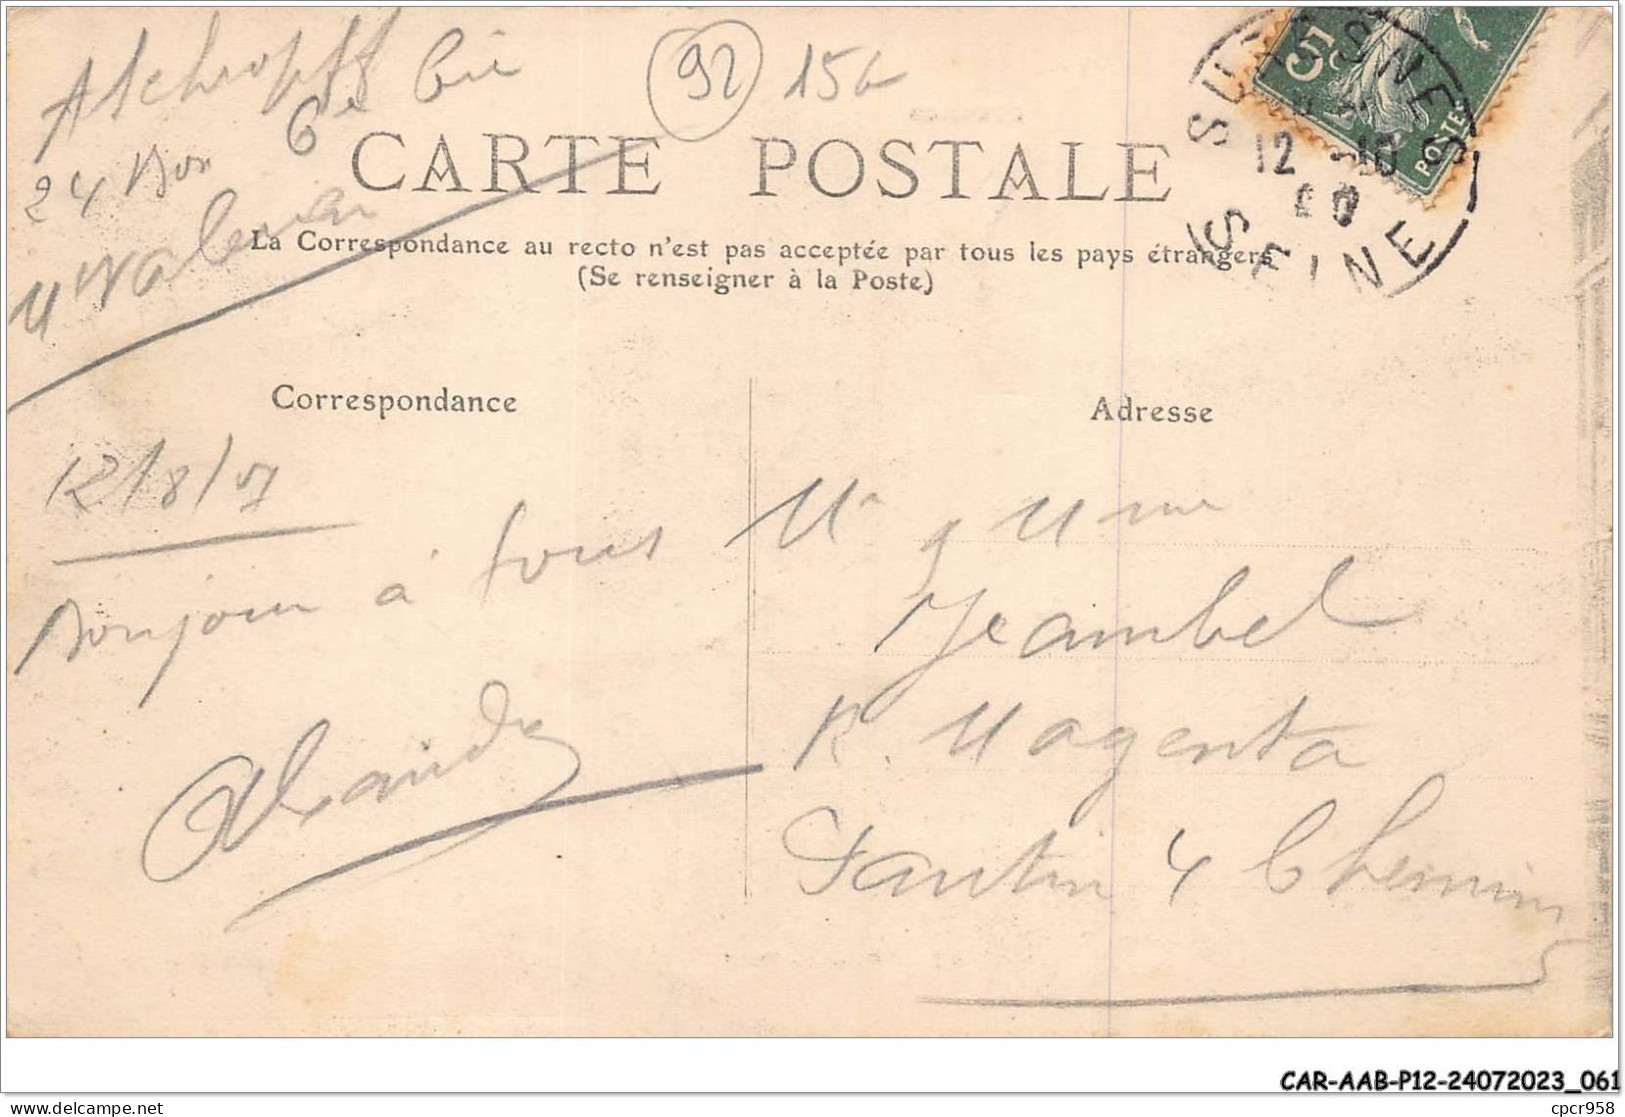 Aschropff
6e Cie
24 Bon
Mt Valerien
92
156
CARTE POSTALE
La Correspondance au recto n'est pas acceptée par tous les pays étrangers
(Se renseigner à la Poste)
SURESNES
12 -10
SEINE
5c
POSTES
Correspondance
Adresse
12/8/07
Bonjour à tous
Mr & Mme
Jeambel
R. Magenta
Pantin 4 Chemins
CAR-AAB-P12-24072023_061
delcampe.net
cpcr958